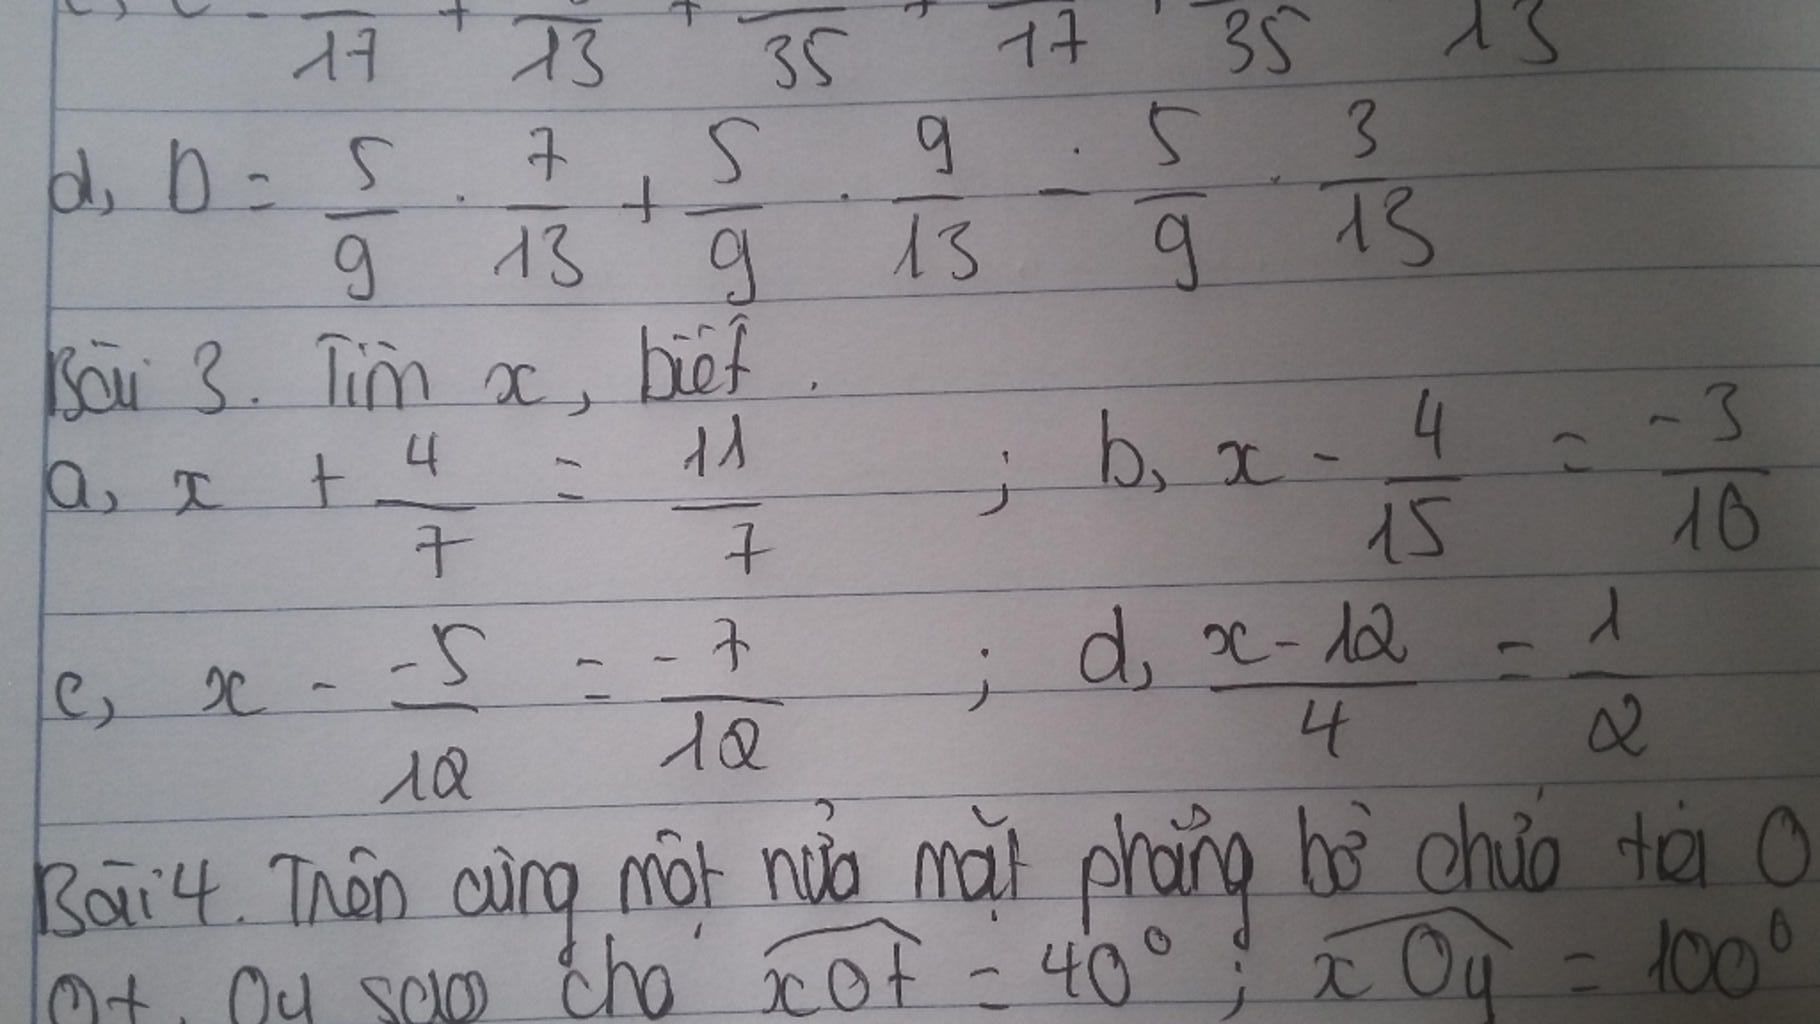 17 + 13 + 35 + 17 35 13
d, D = 5/9 . 7/13 + 5/9 . 9/13 - 5/9 . 3/13
Bài 3. Tìm x, biết.
a, x + 4/7 = 11/7 ; b, x - 4/15 = -3/10
c, x - -5/12 = -7/12 ; d, x-12/4 = 1/2
Bài 4. Trên cùng một nửa mặt phẳng bờ chứa tia O
Ot, Oy sao cho xOt = 40° ; xOy = 100°